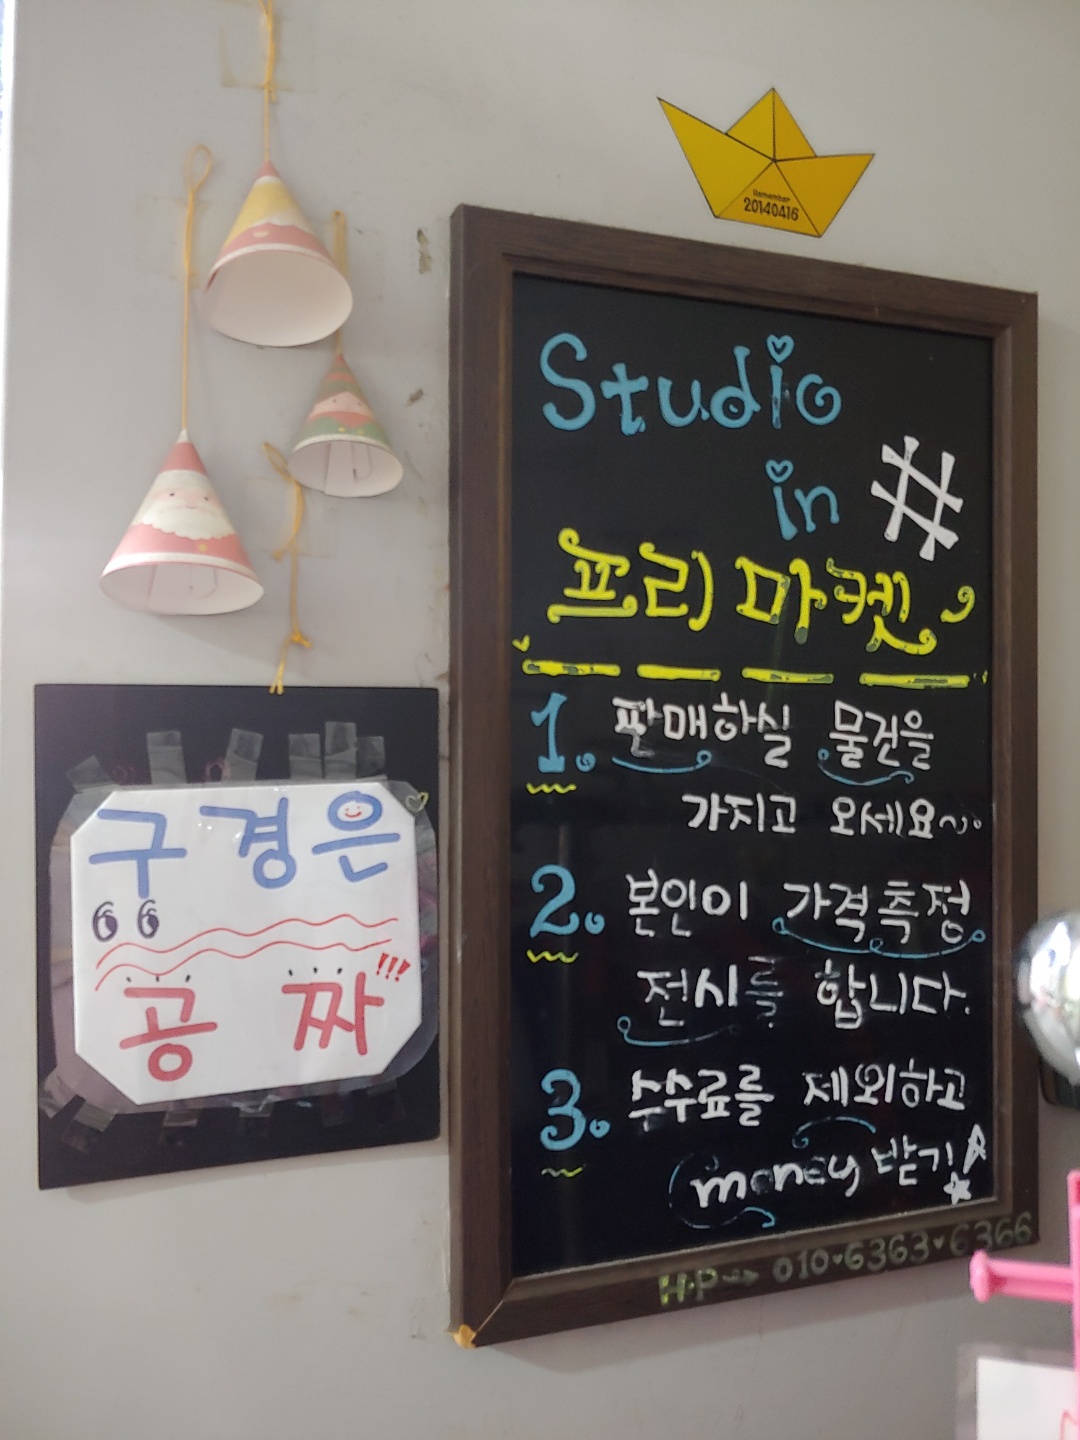 Remember
20140416
Studio
in #
프리마켓
1. 판매하실 물건을
가지고 오세요~
2. 본인이 가격측정
전시를 합니다.
3. 수수료를 제외하고
money 받기!
H.P → 010·6363·6366
구경은
공짜!!!